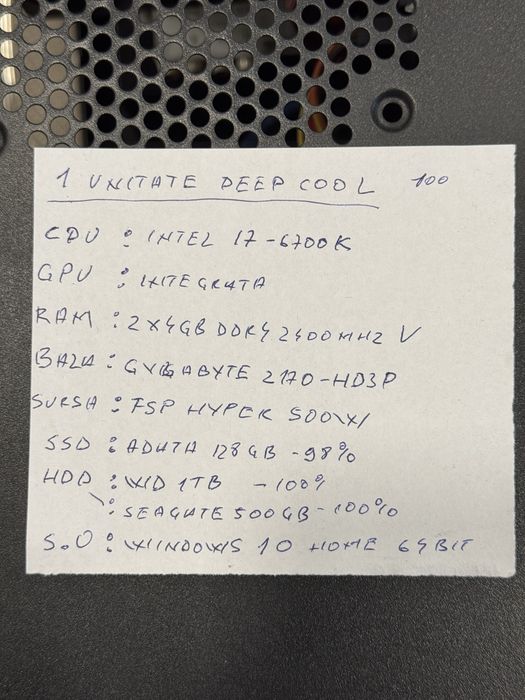 1 UNITATE DEEP COOL 100
CPU : INTEL I7-6700K
GPU : INTEGRATA
RAM : 2X4GB DDR4 2400MHZ V
BAZA : GYGABYTE Z170-HD3P
SURSA : FSP HYPER 500W
SSD : ADATA 128GB - 98%
HDD : WD 1TB - 100%
: SEAGATE 500GB - 100%
S.O : WINDOWS 10 HOME 64BIT